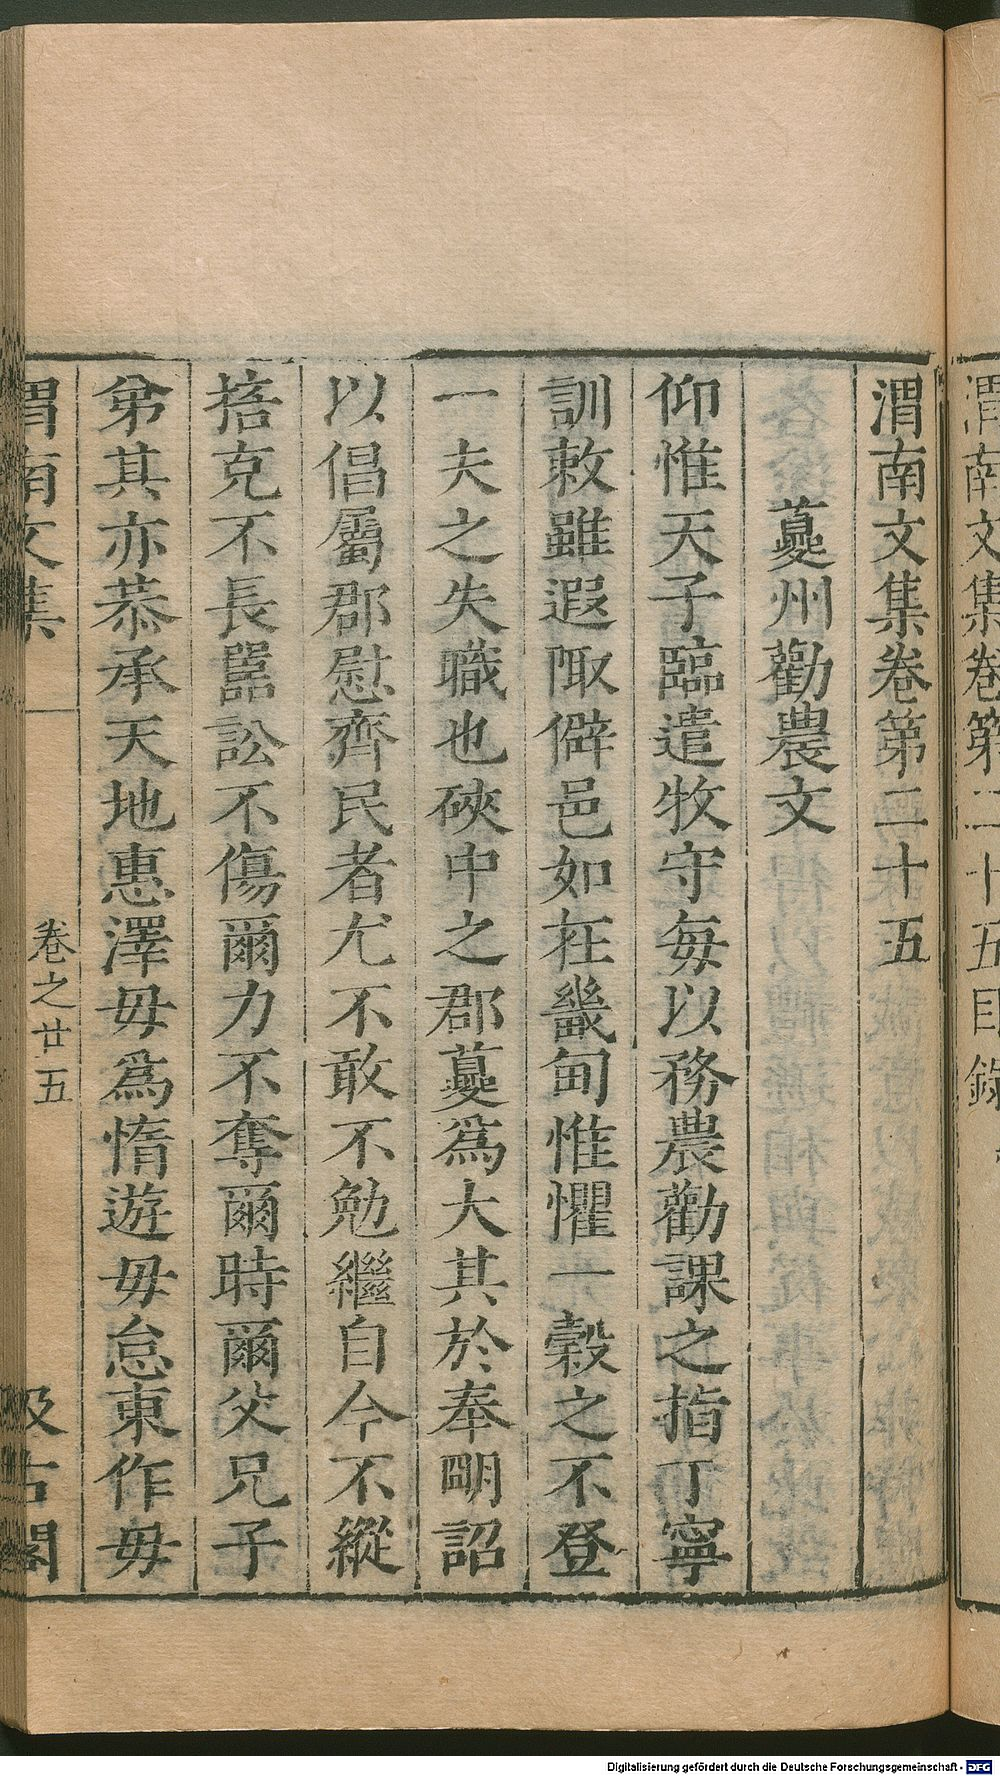 渭南文集卷第二十五目錄
渭南文集卷第二十五
夔州勸農文
仰惟天子臨遣牧守每以務農勸課之指丁寧
訓敕雖遐陬僻邑如在畿甸惟懼一穀之不登
一夫之失職也硤中之郡夔爲大其於奉明詔
以倡屬郡慰齊民者尤不敢不勉繼自今不縱
掊克不長嚚訟不傷爾力不奪爾時爾父兄子
弟其亦恭承天地惠澤毋爲惰遊毋怠東作毋
渭南文集
卷之廿五
汲古閣
Digitalisierung gefördert durch die Deutsche Forschungsgemeinschaft - DFG